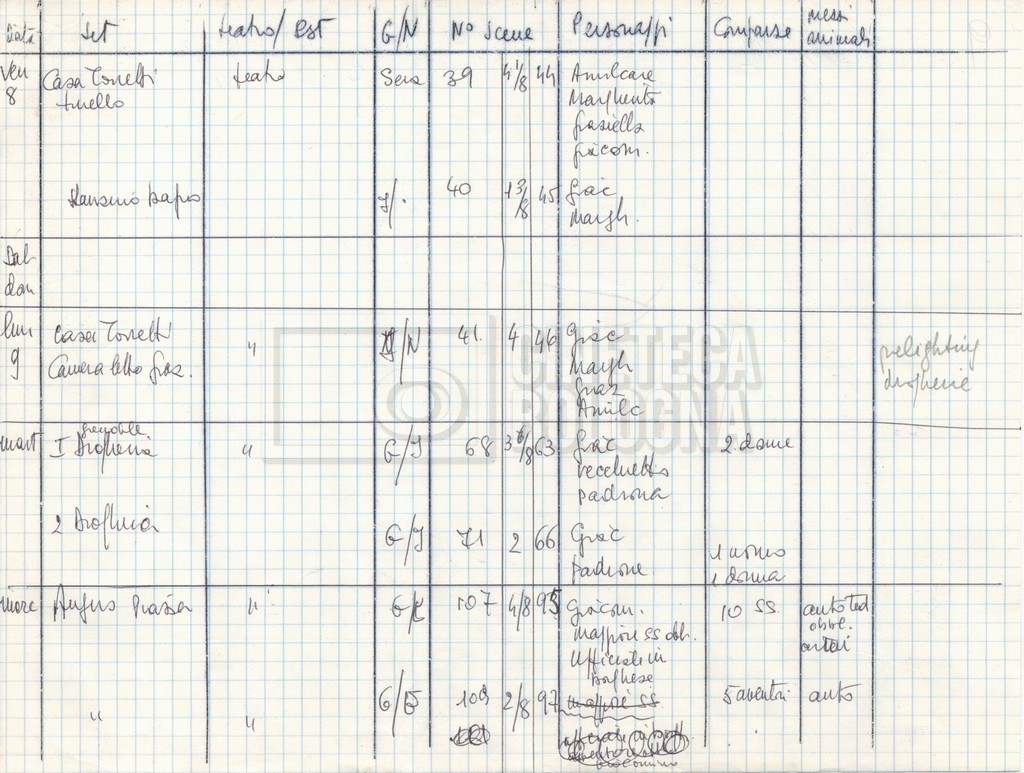 Data Set teatro/Est G/N No Scene Personaggi Comparse mezzi
animali
Ven Casa Tonetti teatro Sera 39 4 1/8 44 Amilcare
8 tinello Margherita
Graziella
Giacom.
40 1 3/8 45 Giac
Margh.
Sab
dom
lun Casa Tonetti " /N 41. 4 46 Giac
9 Camera letto Graz. Margh
Graz
Amilc
relighting
drogherie
CINETECA
BOLOGNA
mart I Drogheria " G/I 68 3 /8 63 Giac 2 donne
vecchietto
padrona
2 Drogheria G/I 71 2 66 Giac
padrone 1 uomo
1 donna
merc Piazza " G/E 107 4/8 95 Giacom. 10 SS auto ted
maggiore SS
ufficiale in
borghese
" " G/E 109 2/8 97 maggiore SS 5 auto